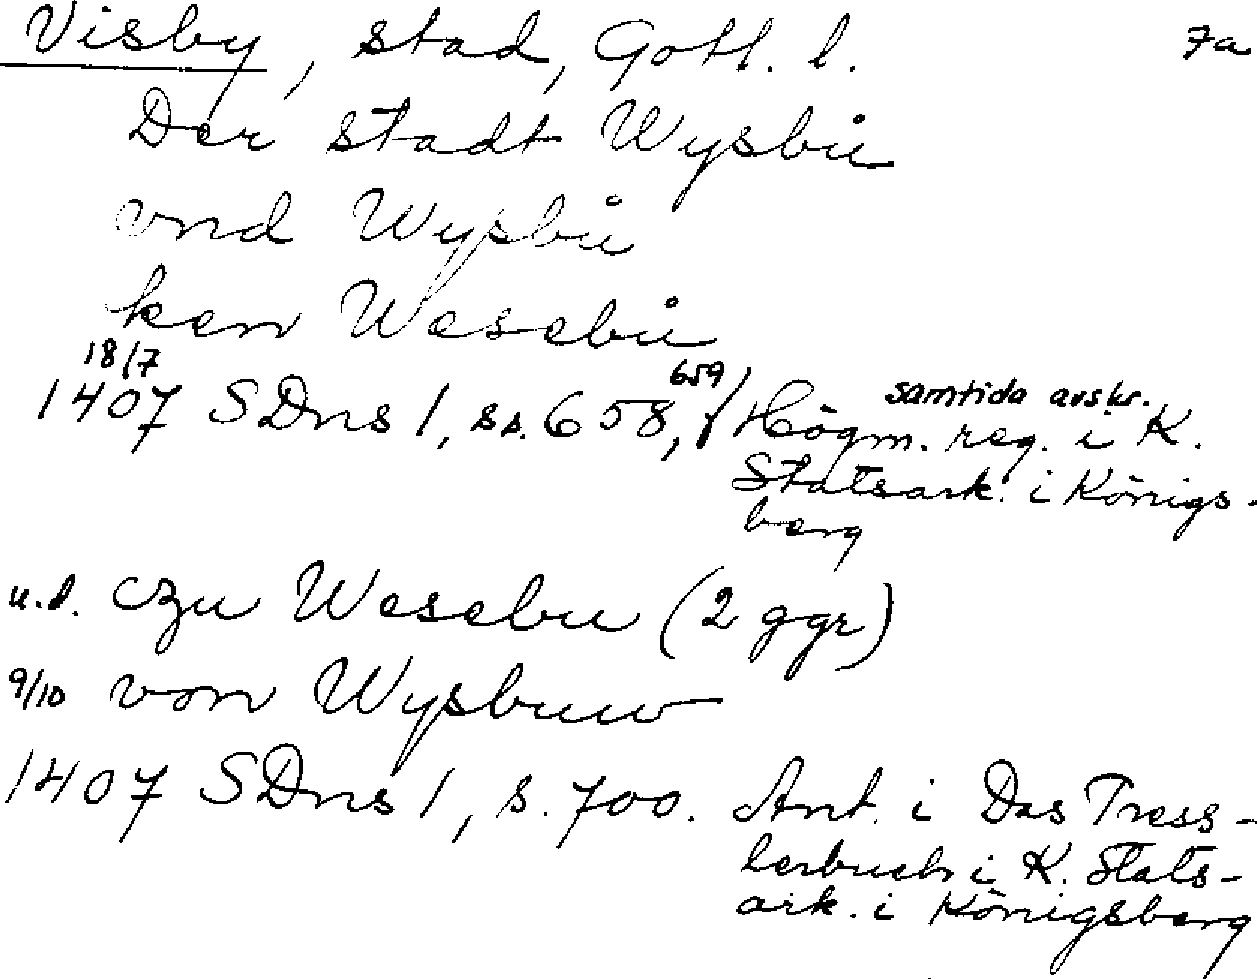 Visby, stad, Gotl. l. 7a
Der stadt Wysbů
vnd Wysbů
ken Wesebů
18/7
1407 SDns 1, ss. 658, 659 / samtida avskr.
Högm. reg. i K.
Statsark. i Königs-
berg
u.d. czu Wesebu (2 ggr)
9/10 von Wysbuw
1407 SDns 1, s. 700. Ant. i Das Tress-
lerbuch i K. Stats-
ark. i Königsberg